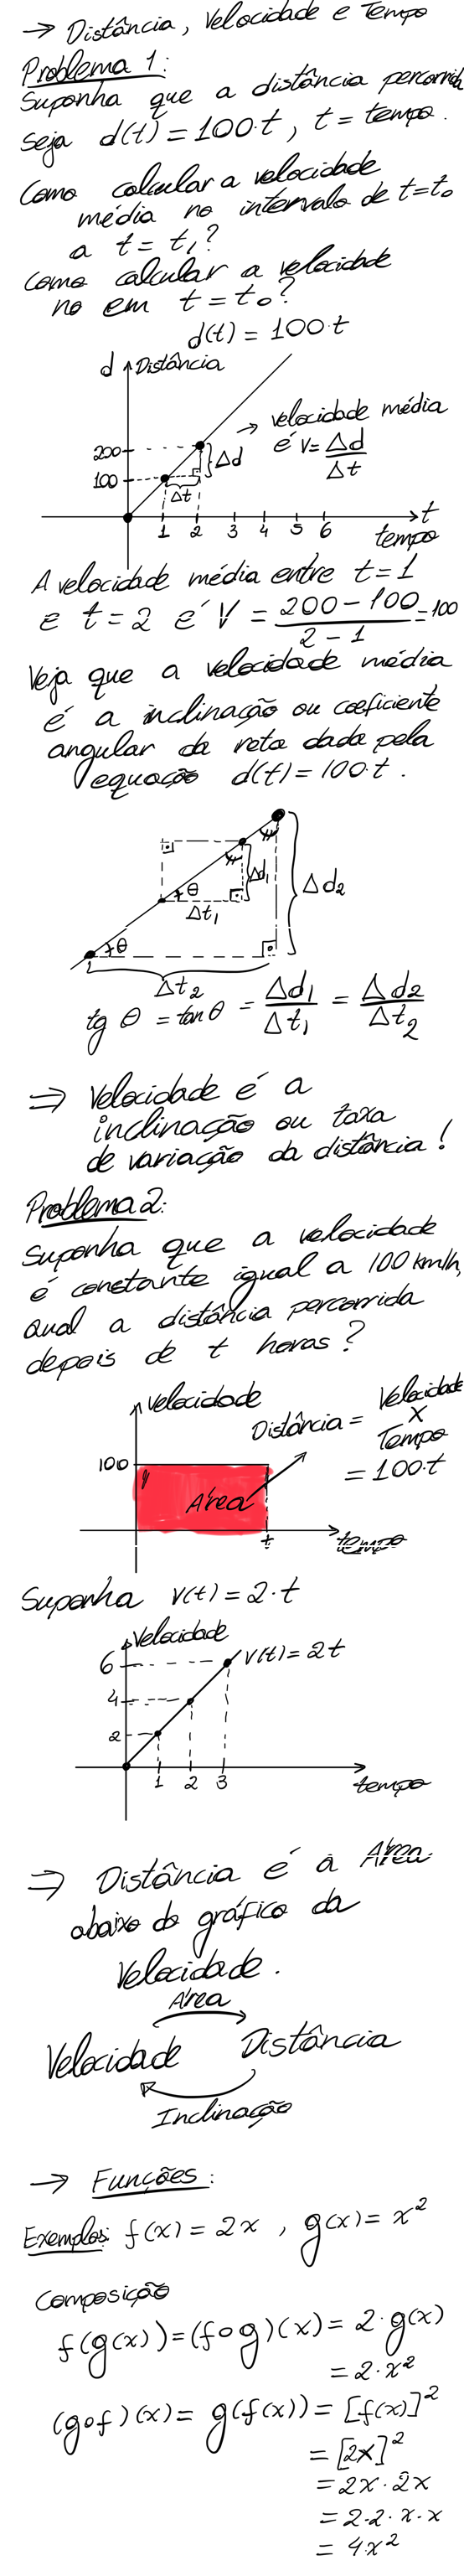 → Distância, Velocidade e Tempo
Problema 1:
Suponha que a distância percorrida
seja d(t) = 100·t, t = tempo.
Como calcular a velocidade
média no intervalo de t=t₀
a t = t₁?
Como calcular a velocidade
no em t = t₀?
d(t) = 100·t
d Distância
→ velocidade média
é V = Δd/Δt
200
Δd
100
Δt
1 2 3 4 5 6
t
tempo
A velocidade média entre t=1
e t=2 é V = (200 - 100)/(2 - 1) = 100
Veja que a velocidade média
é a inclinação ou coeficiente
angular da reta dada pela
equação d(t) = 100·t.
Δd₁
Δd₂
θ
Δt₁
θ
Δt₂
tg θ = tan θ = Δd₁/Δt₁ = Δd₂/Δt₂
⇒ Velocidade é a
inclinação ou taxa
de variação da distância!
Problema 2:
Suponha que a velocidade
é constante igual a 100 km/h,
qual a distância percorrida
depois de t horas?
Velocidade
Distância = Velocidade
x
Tempo
= 100·t
100
Área
t
tempo
Suponha v(t) = 2·t
Velocidade
6
v(t) = 2t
4
2
1 2 3
tempo
⇒ Distância é a Área
abaixo do gráfico da
Velocidade.
Área
Velocidade Distância
Inclinação
→ Funções:
Exemplos: f(x) = 2x, g(x) = x²
Composição
f(g(x)) = (f∘g)(x) = 2·g(x)
= 2·x²
(g∘f)(x) = g(f(x)) = [f(x)]²
= [2x]²
= 2x·2x
= 2·2·x·x
= 4·x²